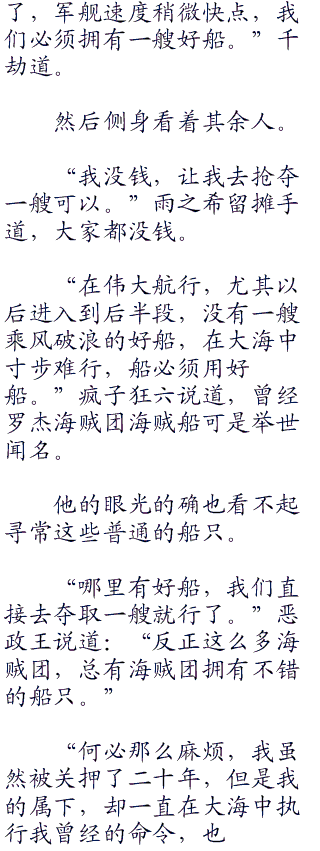 了，军舰速度稍微快点，我
们必须拥有一艘好船。”千
劫道。
然后侧身看着其余人。
“我没钱，让我去抢夺
一艘可以。”雨之希留摊手
道，大家都没钱。
“在伟大航行，尤其以
后进入到后半段，没有一艘
乘风破浪的好船，在大海中
寸步难行，船必须用好
船。”疯子狂六说道，曾经
罗杰海贼团海贼船可是举世
闻名。
他的眼光的确也看不起
寻常这些普通的船只。
“哪里有好船，我们直
接去夺取一艘就行了。”恶
政王说道：“反正这么多海
贼团，总有海贼团拥有不错
的船只。”
“何必那么麻烦，我虽
然被关押了二十年，但是我
的属下，却一直在大海中执
行我曾经的命令，也